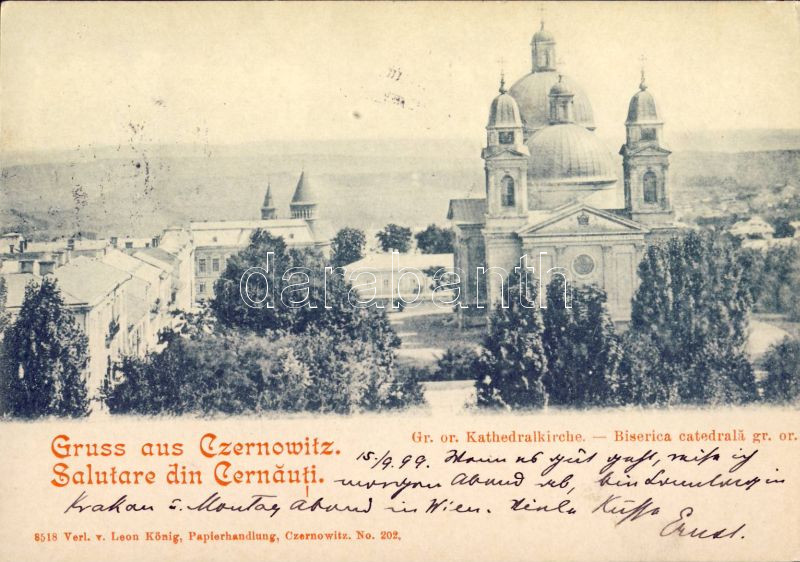 darabanth
Gr. or. Kathedralkirche. — Biserica catedrală gr. or.
Gruss aus Czernowitz.
Salutare din Cernăuți.
15./9.99. Wenn es gut geht, reise ich
morgen Abend ab, bin Sonntag in
Krakau u. Montag Abend in Wien. Viele Küsse
Ernst.
8518 Verl. v. Leon König, Papierhandlung, Czernowitz. No. 202.